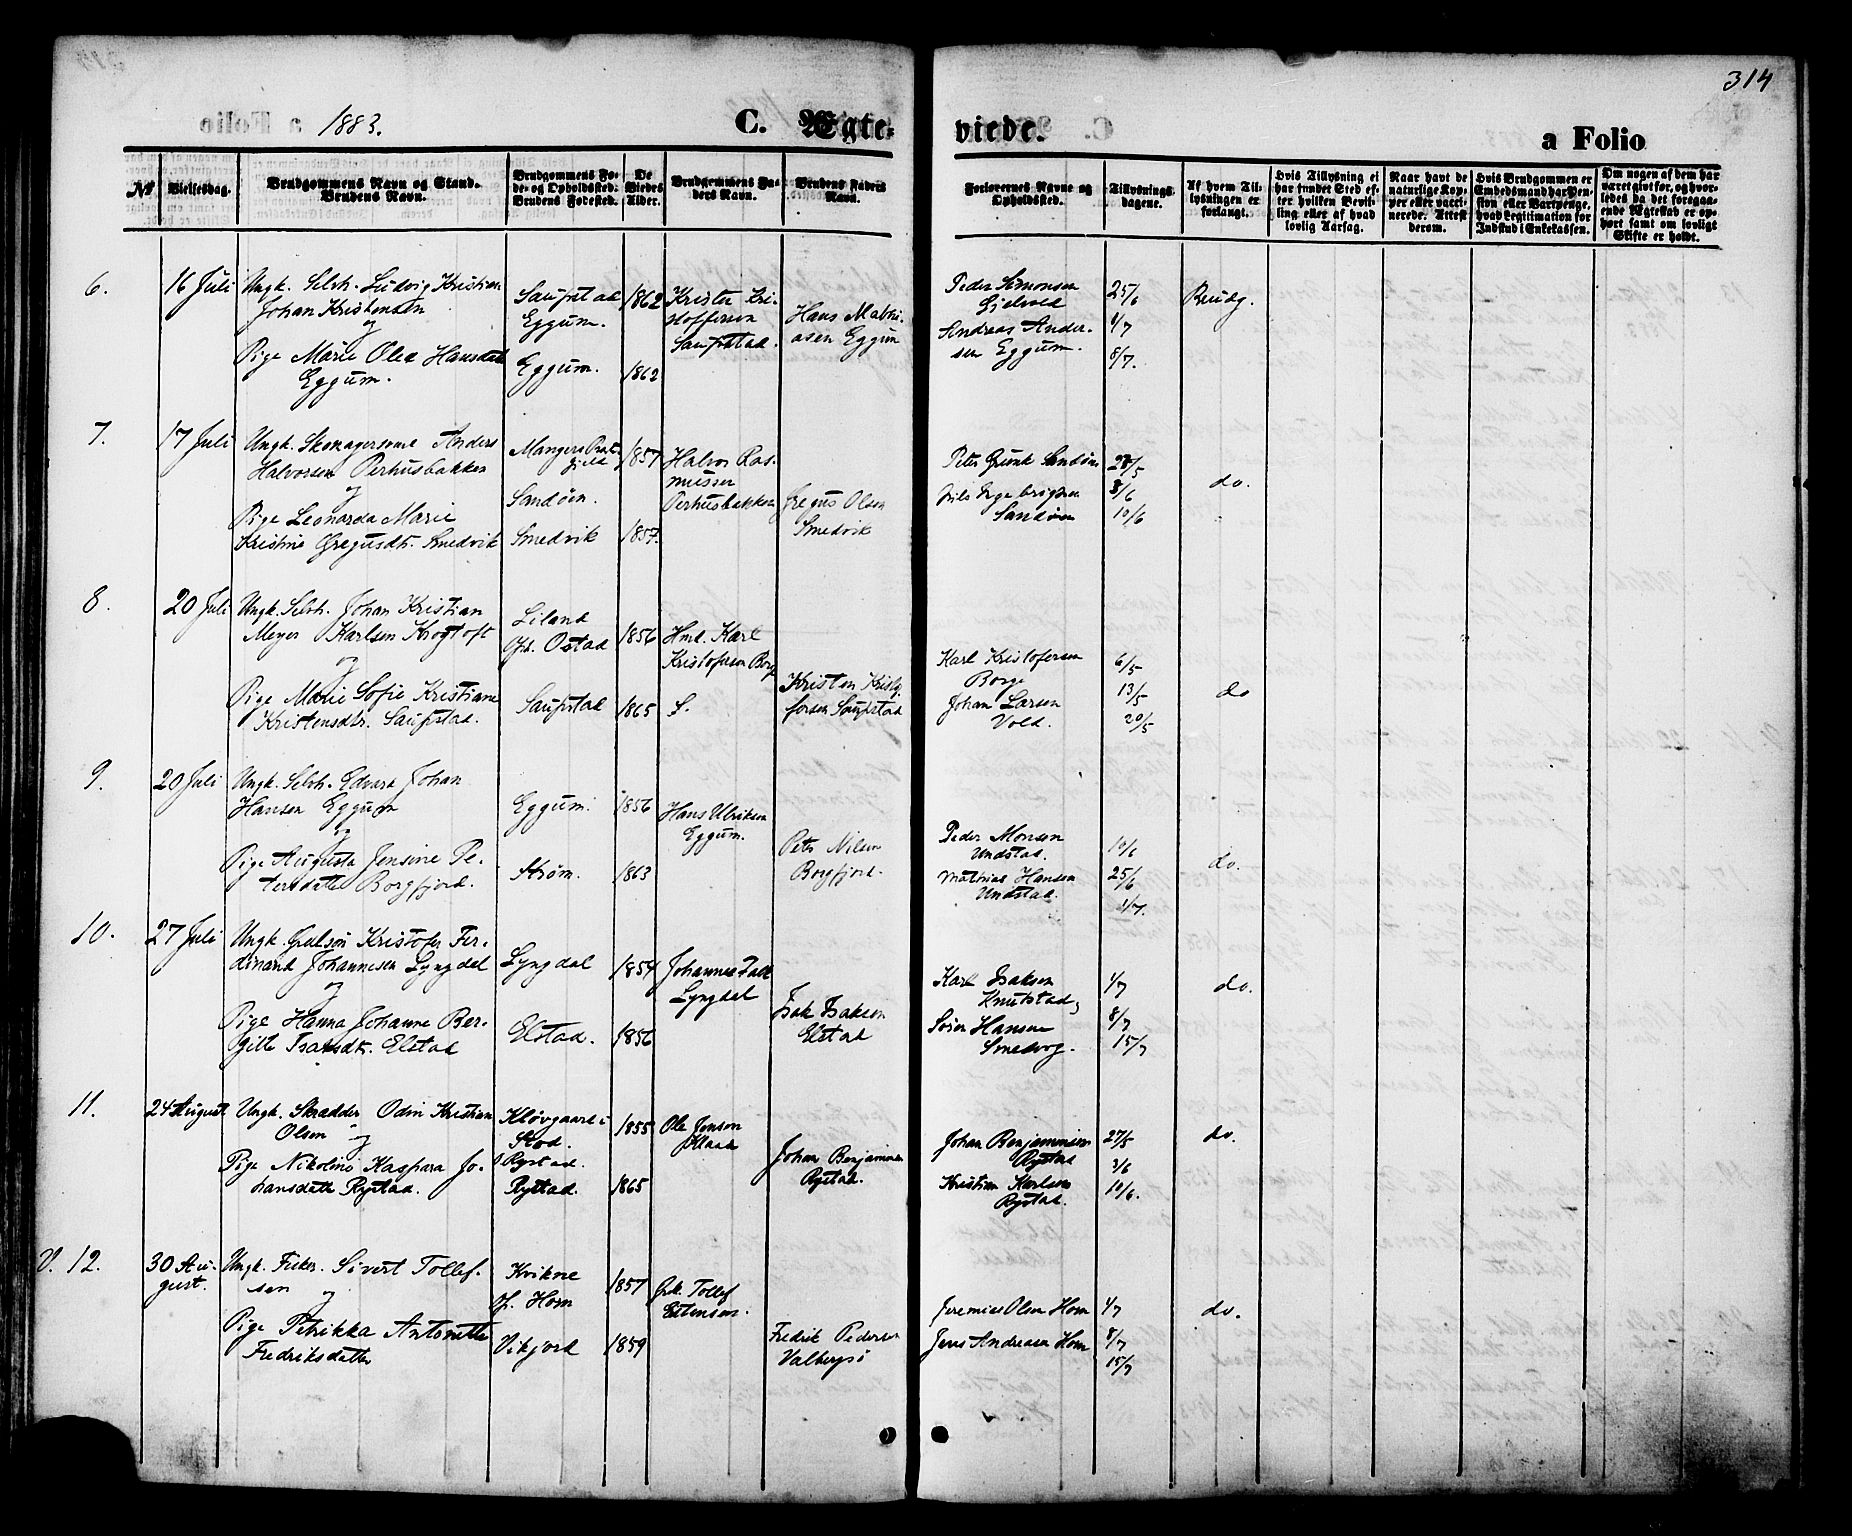 314
1883.
C. Ægte-
viede.
a Folio
No
Vielsesdag.
Brudgommens Navn og Stand.
Brudens Navn.
Brudgommens Fø-
de- og Opholdssted.
Brudens Fødested.
De
Viedes
Alder.
Brudgommens Fa-
ders Navn.
Brudens Faders
Navn.
Forlovernes Navne og
Opholdssted.
Tillysnings-
dagene.
Af hvem Til-
lysningen er
forlangt.
Hvis Tillysning ei
har fundet Sted ef-
ter hvilken Bevil-
ling eller af hvad
lovlig Aarsag.
Naar havt de
naturlige Kop-
per eller vacci-
nerede. Attest
derom.
Hvis Brudgommen er
Embedsmand har Pen-
sion eller Vartpenge,
hvad Legitimation for
Indskud i Enkekassen.
Om nogen af dem har
været gift før, og hvor-
ledes da det foregaa-
ende Ægteskab er op-
hørt samt om lovligt
Skifte er holdt.
6.
16 Juli
Ungk. Selvh. Ludvig Kristian
Johan Kristensen
og
Pige Marie Olea Hansdatt
Eggum.
Saupstad
Eggum.
Eggum.
1862
1862
Krister Kri-
stoffersen
Saupstad.
Hans Mathi-
asen Eggum
Peder Simonsen
Gjelvold
Andreas Ander-
sen Eggum.
25/6
1/7
8/7.
Brudg.
7.
17 Juli
Ungk. Skomagersvend Anders
Halvorsen Perhusbakken
og
Pige Leonarda Marie
Kristine Gregusdt. Smedvik
Mangers Præste
gjeld
Sandøen.
Smedvik
1857
1857.
Halvor Ras-
mussen
Perhusbakken
Gregus Olsen
Smedvik
Peter Grunk Sandøen
Nils Ingebrigtsen
Sandøen
27/5
3/6
10/6
do.
8.
20 Juli
Ungk. Selvh. Johan Kristian
Meyer Karlsen Krogtoft
og
Pige Marie Sofie Kristiane
Kristensdtr. Saupstad.
Liland
Oph. Ostad
Saupstad
1856
1865
Hmd. Karl
Kristofersen Borge
S.
Kristen Kristof-
fersen Saupstad
Karl Kristofersen
Borge
Johan Larsen
Vold.
6/5
13/5
20/5
do
9.
20 Juli
Ungk. Selvh. Edvard Johan
Hansen Eggum
og
Pige Augusta Jensine Pe-
tersdatte Borgfjord.
Eggum.
Strøm.
1856
1863
Hans Ulriksen
Eggum.
Peter Nilsen
Borgfjord.
Peder Monsen
Undstad.
Mathias Hansen
Undstad.
10/6
25/6
1/7.
do.
10.
27 Juli
Ungk. Kristofer Fer-
dinand Johannesen Lyngdal
og
Pige Hanna Johanne Ber-
gitte Isaksdt. Elstad
Lyngdal
Elstad.
1854
1856
Johannes Falk
Lyngdal
Isak Isaksen
Elstad
Karl Isaksen
Knutstad,
Sører Hansen
Smedvog.
1/7
8/7
15/7
do.
11.
24 August
Ungk. Skrædder Odin Kristian
Olsen og
Pige Nikoline Kaspara Jo-
hansdatte Rystad.
Kløvgaard i
Stod.
Rystad.
Rystad.
1855
1865
Ole Jenson
Johan Benjaminsen
Rystad.
Johan Benjaminsen
Rystad
Kristian Karlsen
Rystad.
27/5
3/6
10/6.
do.
V. 12.
30 Au-
gust.
Ungk. Fisker. Sivert Tollef-
sen og
Pige Petrikka Antonette
Fredriksdatter
Kvikne
Oph. Horn
Vikjord
1857
1859
Tollef
Estensen.
Fredrik Pedersen
Valbergsø
Jeremias Olsen Horn
Jens Andreasen Horn
1/7
8/7
15/7
do.